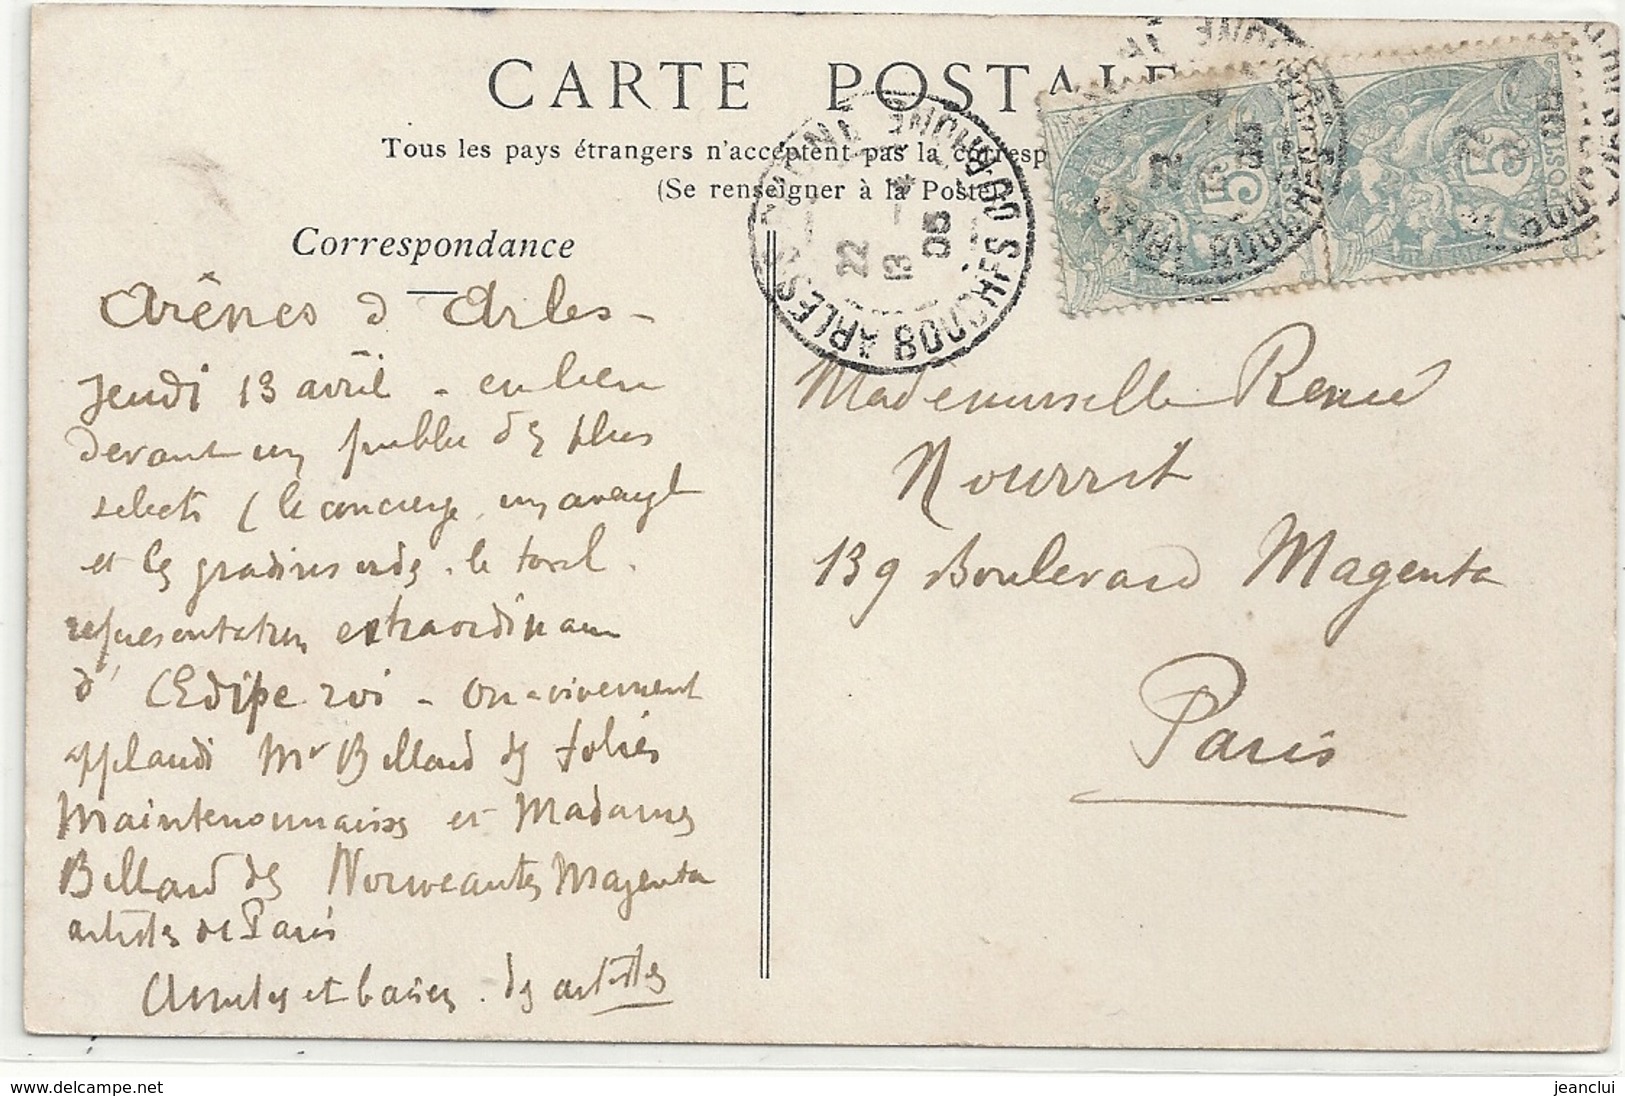 CARTE POSTALE
Tous les pays étrangers n'acceptent pas la corresp
(Se renseigner à la Poste)
Correspondance
Arênes d'Arles -
Jeudi 13 avril - eu lieu
devant un public des plus
selects (le concierge, un aveugle
et les gradins vides. le total.
représentation extraordinaire
d'Œdipe roi - on a vivement
applaudi Mr Billard des folies
Maintenonnaises et Madame
Billard des Nouveautés Magenta
artistes de Paris
Amitiés et baisers. des artistes
Mademoiselle Renée
Nourrit
139 Boulevard Magenta
Paris
ARLES BOUCHES DU RHONE
22
13 - 4
05
5
POSTES
5
POSTES
www.delcampe.net
jeanclui